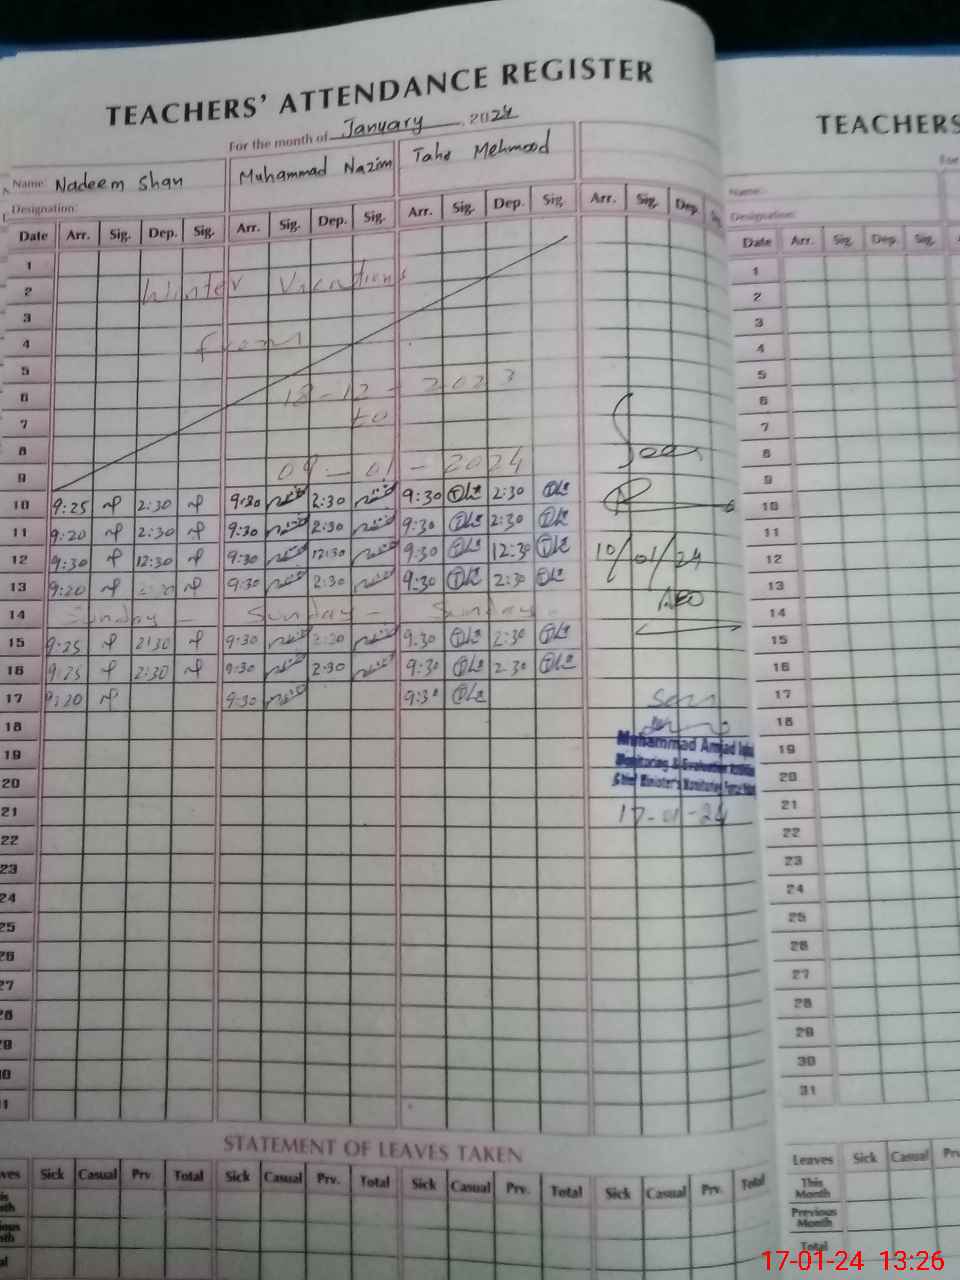 TEACHERS' ATTENDANCE REGISTER
For the month of January, 2024
Name: Nadeem Shah Muhammad Nazim Taha Mehmood
Designation:
Date Arr. Sig. Dep. Sig. Arr. Sig. Dep. Sig. Arr. Sig. Dep. Sig. Arr. Sig. Dep.
1
2 Winter Vacations
3
4 from
5
6 18-12-2023
7 to
8
9 09-01-2024
10 9:25 2:30 9:30 2:30 9:30 2:30
11 9:20 2:30 9:30 2:30 9:30 2:30
12 9:30 12:30 9:30 12:30 9:30 12:30
13 9:20 2:30 9:30 2:30 9:30 2:30
14 Sunday - Sunday - Sunday -
15 9:25 2:30 9:30 2:30 9:30 2:30
16 9:25 2:30 9:30 2:30 9:30 2:30
17 9:20 9:30 9:30
18
19
20
21
22
23
24
25
26
27
28
29
30
31
Seen
10/01/24
AEO
Seen
Muhammad Amjad
Monitoring & Evaluation
Chief Minister's Monitoring Force
17-01-24
STATEMENT OF LEAVES TAKEN
Sick Casual Prv. Total Sick Casual Prv. Total Sick Casual Prv. Total Sick Casual Prv. Total
TEACHERS
Name:
Designation:
Date Arr. Sig. Dep. Sig.
1
2
3
4
5
6
7
8
9
10
11
12
13
14
15
16
17
18
19
20
21
22
23
24
25
26
27
28
29
30
31
Leaves Sick Casual
This Month
Previous Month
Total
17-01-24 13:26